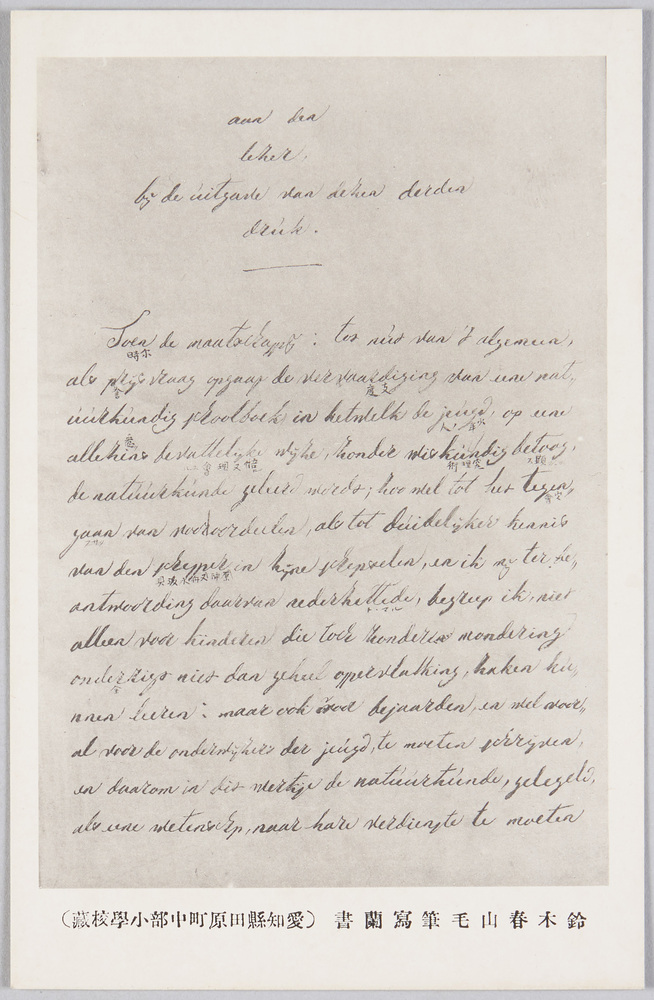 aan den
lezer,
bij de uitgave van dezen derden
druk.
Toen de maatschappij: tot nut van 't algemeen,
als prijsvraag opgaaf de vervaardiging van eene nat„
uurkundig schoolboek in hetwelk de jeugd, op eene
allezins bevattelijke wijze, zonder wiskundig betoog,
de natuurkunde geleerd wordt; hoe wel tot het tegen„
gaan van vooroordeelen, als tot duidelijker kennis
van den schepper in zijne schepselen, en ik mij ter be„
antwoording daarvan nederzettede, begreep ik, niet
alleen voor kinderen die toch zonder wondering
onderzigt niet dan geheel oppervlakkig, zaken ku„
nnen leeren: maar ook voor bejaarden, en wel voor„
al voor de onderwijzers der jeugd, te moeten schrijven,
en daarom in dit werkje de natuurkunde,
als eene wetenschap, naar hare verdienste te moeten
鈴木春山毛筆寫蘭書 (愛知縣田原町中部小學校藏)